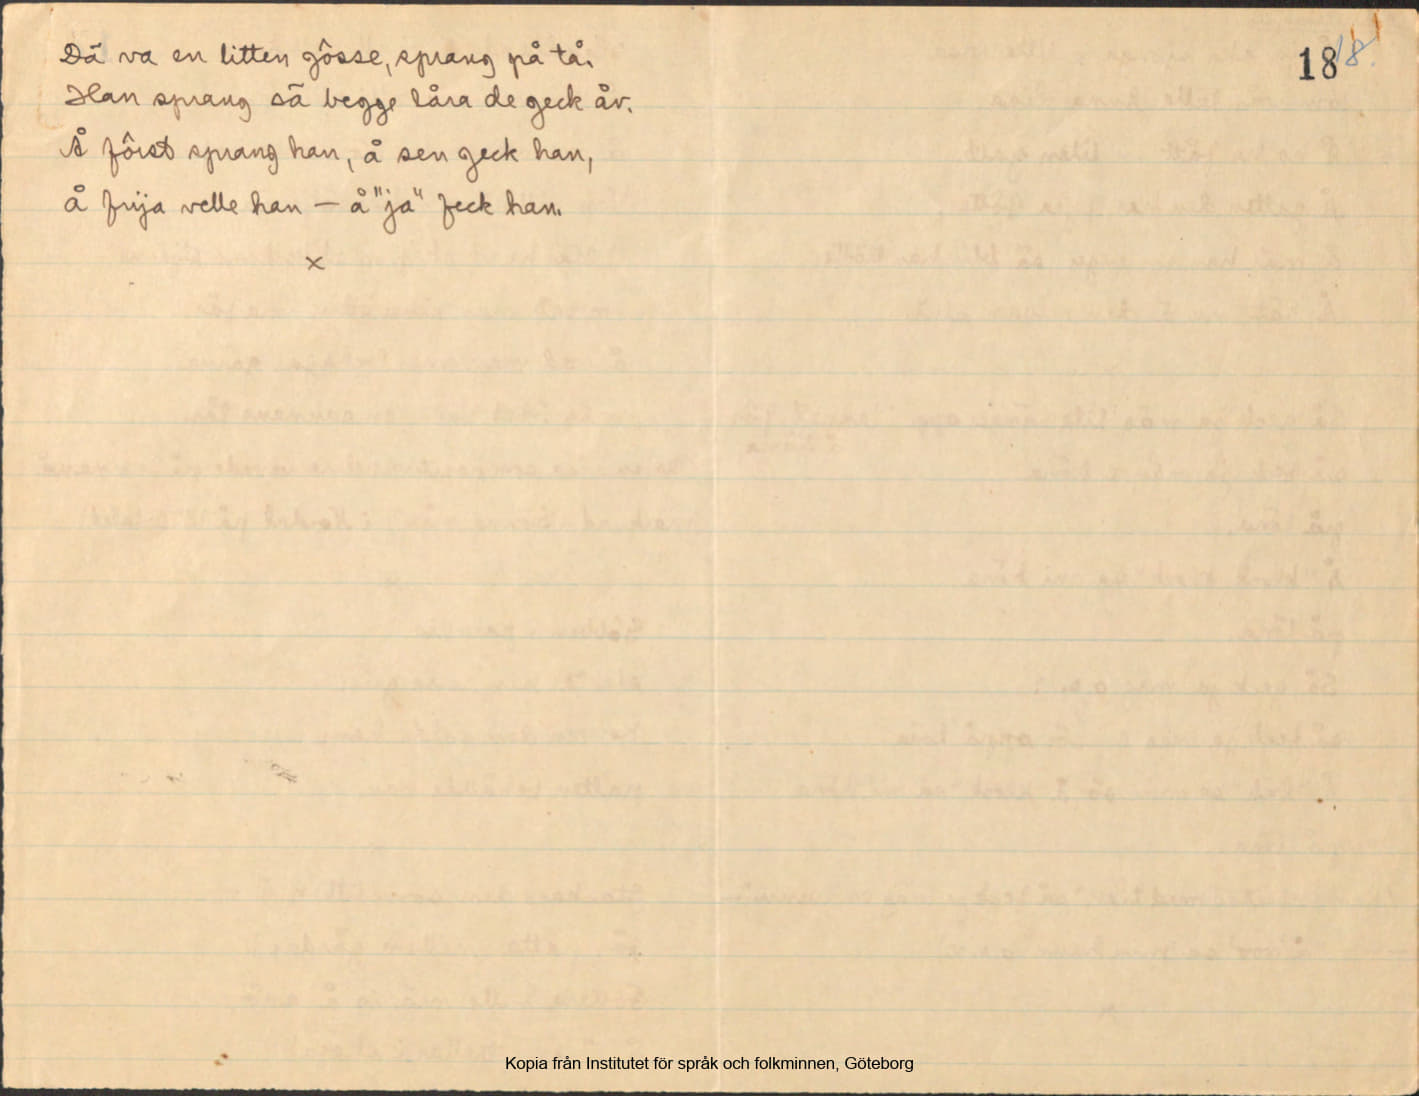 Dä va en litten gôsse, sprang på tå.
18 18.
Han sprang så begge låra de geck åv.
Å fôrst sprang han, å sen geck han,
å frija velle han — å "ja" feck han.
x
Kopia från Institutet för språk och folkminnen, Göteborg